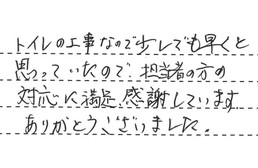 トイレの工事なので少しでも早くと
思っていたので、担当者の方の
対応に満足、感謝しています。
ありがとうございました。